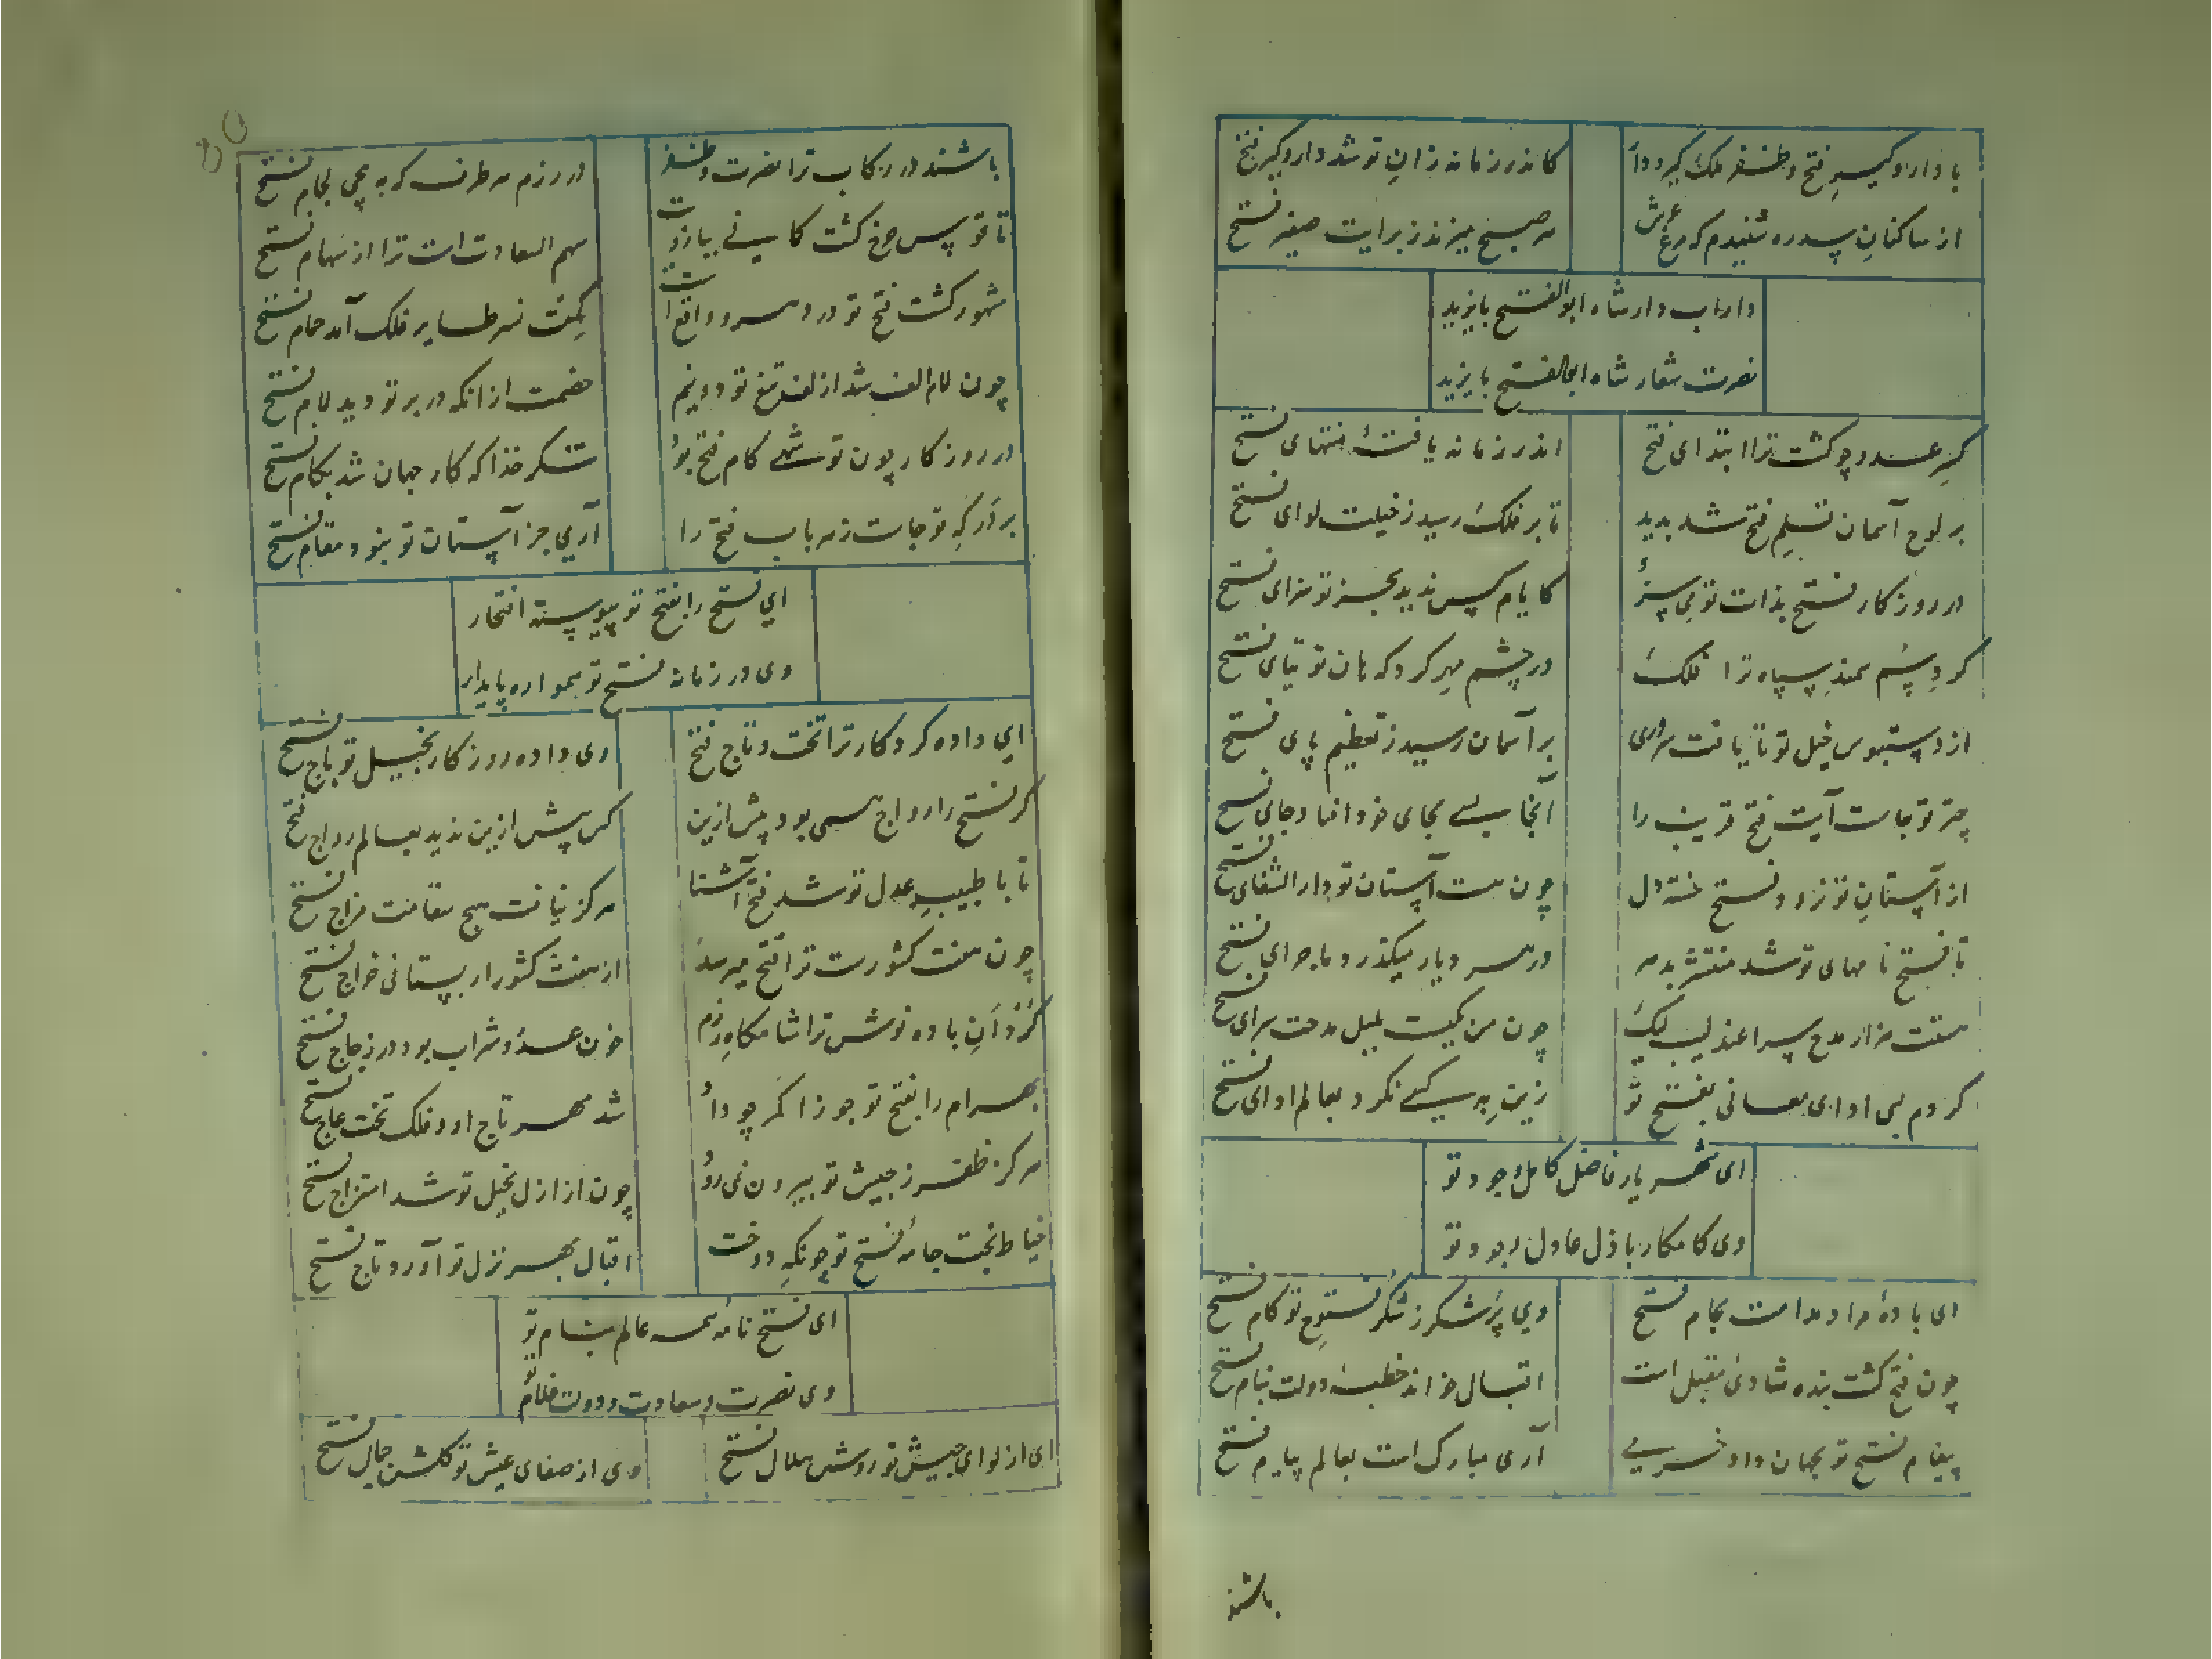 با دار و گیر فتح و ظفر ملک گیر و دار
کاندر زمانه زان تو شد دار و گیر فتح
از ساکنان سدره شنیدم که مرغ عرش
هر صبح میزند ز برایت صفیر فتح
داراب دار شاه ابوالفتح بایزید
نصرت شعار شاه ابوالفتح بایزید
کسر عدو چو گشت ترا ابتدای فتح
اندر زمانه یافته منتهای فتح
بر لوح آسمان قلم فتح شد پدید
تا بر فلک رسید ز خیلت لوای فتح
در روزکار فتح بذات تو می سزد
کایام کس ندید بجز تو سزای فتح
کرد سم سمند سپاه ترا فلک
در چشم مهر کرد که هان توتیای فتح
از دستبوس خیل تو تا یافت سروری
بر آسمان رسید ز تعظیم پای فتح
چتر تو جاست آیت فتح قریب را
آنجا بسی بجای خود افتاد جای فتح
از آستان تو نرود فتح خسته دل
چون هست آستان تو دار الشفای فتح
تا فتح نامهای تو شد منتشر بدهر
در هر دیار میگذرد ماجرای فتح
هستت هزار مدح سرا عندلیب لیک
چون من کیست بلبل مدحت سرای فتح
کردم بسی ادای معانی بفتح تو
زین به کسی نکرد بعالم ادای فتح
ای شهریار فاضل کامل وجود تو
وی کامکار باذل عادل بجود تو
ای باده مراد مدامت بجام فتح
وی پر شکر ز شکر فتوح تو کام فتح
چون فتح گشت بنده شادی مقبل است
اقبال خواند خطبه دولت بنام فتح
پیغام فتح تو بجهان داد خرمی
آری مبارک است بعالم پیام فتح
باشند
باشند در رکاب ترا نصرت و ظفر
در رزم هر طرف که به پیچی لجام فتح
تا قوس چرخ گشت کمانی ببازوت
سهم السعادت است ترا از سهام فتح
مشهور گشت فتح تو در دهر و واقع است
کت نسر طایر فلک آمد حمام فتح
چون لام الف شد از الف تیغ تو دو نیم
خصمت از انکه در بر تو دید لام فتح
در روزکار چون تو شهی کام فتح بود
شکر خدا که کار جهان شد بکام فتح
بر درگه تو جاست زهر باب فتح را
آری جز آستان تو نبود مقام فتح
ای فتح را بفتح تو پیوسته افتخار
وی در زمانه فتح تو همواره پایدار
ای داده کردکار ترا تخت و تاج فتح
وی داده روزکار بخیل تو باج فتح
کر فتح را رواج همی بود پیش ازین
کس پیش ازین ندید بعالم رواج فتح
تا با طبیب عدل تو شد فتح آشنا
هرکز نیافت هیچ سقامت مزاج فتح
چون هفت کشورت ترا فتح میرسد
از هفت کشور ار بستانی خراج فتح
کردان باده نوش ترا شامگاه رزم
خون عدو شراب بود در زجاج فتح
بهرام را بفتح تو جوزا کمر چو داد
شد مهر تاج او و فلک تخت عاج فتح
هرکز ظفر ز جیش تو بیرون نمی رود
چون از ازل بخیل تو شد امتزاج فتح
خیاط بخت جامه فتح تو چونکه دوخت
اقبال بهر نزل تو آورد تاج فتح
ای فتح نامه همه عالم بنام تو
وی نصرت و سعادت و دولت غلام تو
ای از لوای جیش تو روشن هلال فتح
وی از صفای عیش تو گلشن جمال فتح